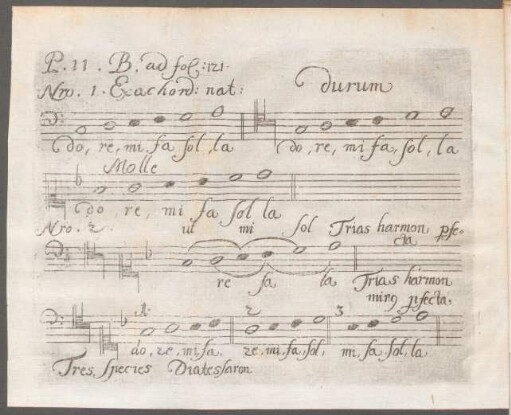 P. 11. B. ad fol: 121.
Nro. 1. Exachord: nat: durum
do, re, mi, fa sol, la do, re, mi, fa, sol, la
Molle
do re, mi fa sol la
Nro. 2. ut mi sol Trias harmon pfe-
cta
re fa la Trias harmon
min9 pfecta
1. 2 3
do, re, mi, fa, re, mi, fa, sol, mi, fa, sol, la
Tres, Species Diatessaron